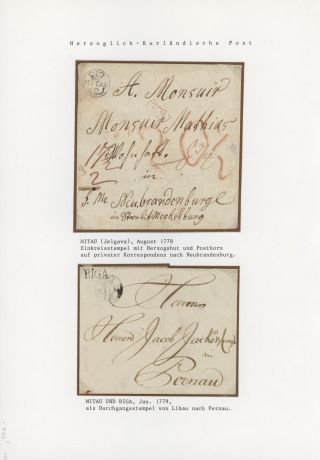 Herzoglich-Kurländische Post
A. Monsuir
Monsuir Mathias
Wohnhaft
in
Neubrandenburg
in Strelitz Meckelburg
MITAU (Jelgava), August 1778
Einkreisstempel mit Herzogshut und Posthorn
auf privater Korrespondenz nach Neubrandenburg.
RIGA
Herrn
Herrn Jacob Jacke
in
Pernau
MITAU UND RIGA, Jan. 1779,
als Durchgangsstempel von Libau nach Pernau.